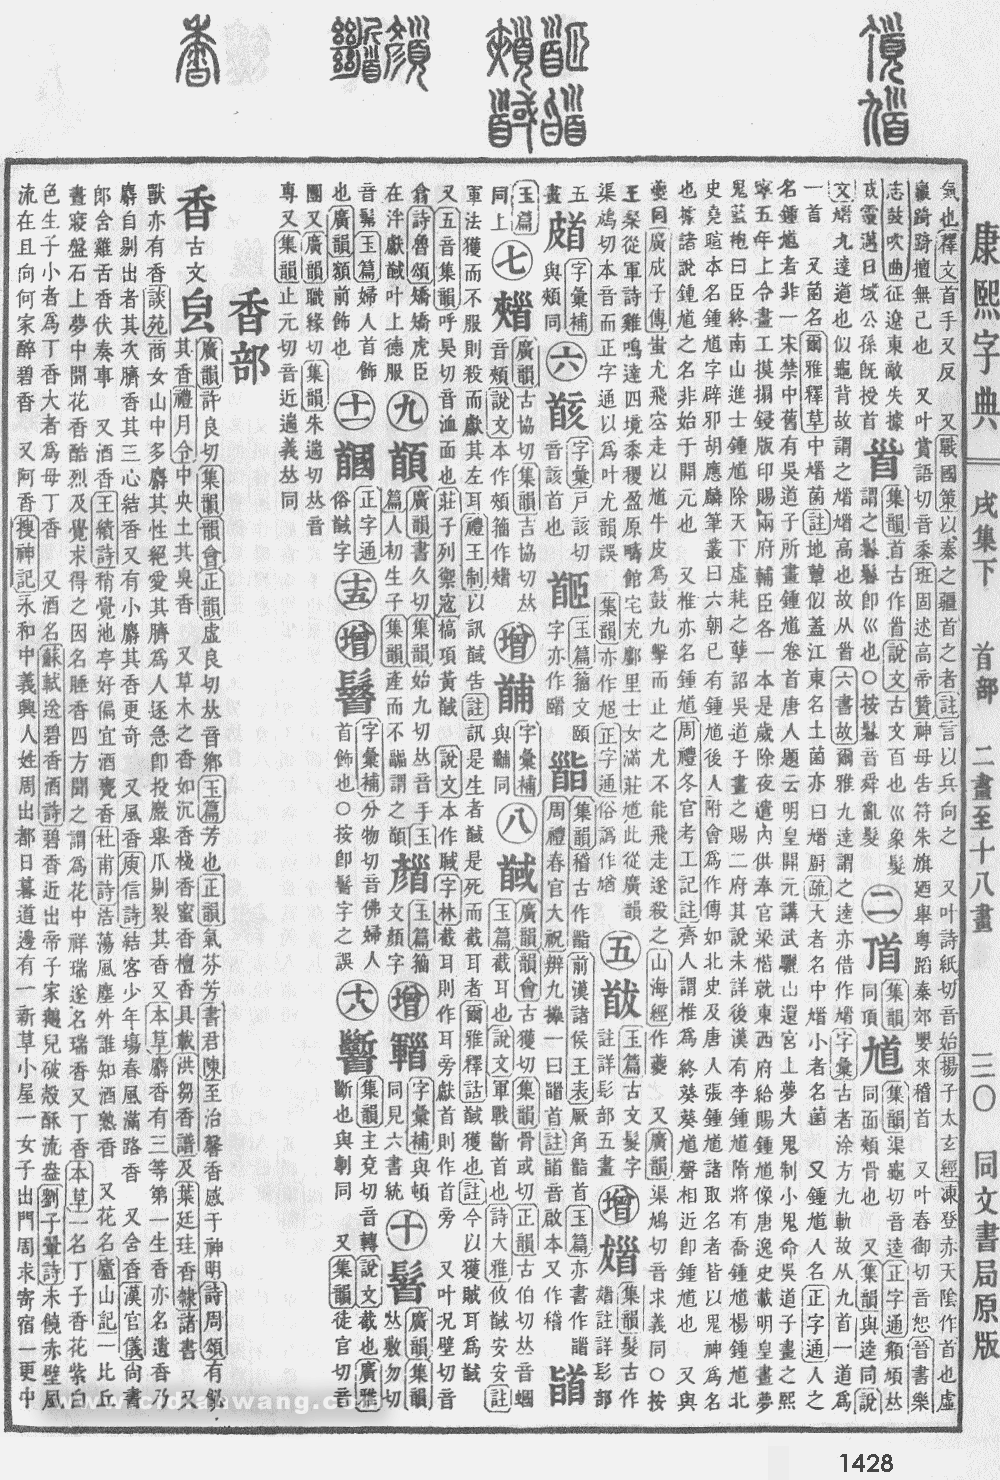 康熙字典 戌集下 首部 二畫至十八畫 三〇 同文書局原版
氣也釋文首手又反 又戰國策以秦之疆首之者註言以兵向之 又叶詩紙切音始揚子太玄經凍登赤天陰作首也虛
嬴踦踦擅無已也 又叶賞語切音黍班固述高帝贊神母告符朱旗廼舉粵蹈秦郊嬰來稽首 又叶舂御切音恕晉書樂
志鼓吹曲征遼東敵失據
威靈邁日域公孫旣授首
𩠐
集韻首古作𩠐說文古文百也巛象髮
謂之鬊鬊卽巛也○按鬊音舜亂髮
㊁
集韻
同頂
馗
集韻渠龜切音逵正字通頯頄𠀤
同面頰骨也 又集韻與逵同說
文馗九達道也似龜背故謂之馗馗高也故从𩠐六書故爾雅九達謂之逵亦借作馗字彙古者涂方九軌故从九首一道爲
一首 又菌名爾雅釋草中馗菌註地蕈似蓋江東名土菌亦曰馗廚疏大者名中馗小者名菌 又鍾馗人名正字通人之
名鍾馗者非一宋禁中舊有吳道子所畫鍾馗卷首唐人題云明皇開元講武驪山還宮上夢大鬼制小鬼命吳道子畫之熙
寧五年上令畫工摸搨鋟版印賜兩府輔臣各一本是歲除夜遣內供奉官梁楷就東西府給賜鍾馗像唐逸史載明皇晝夢
鬼藍袍曰臣終南山進士鍾馗除天下虛耗之孽詔吳道子畫之賜二府其說未詳後漢有李鍾馗隋將有喬鍾馗楊鍾馗北
史堯暄本名鍾馗字辟邪胡應麟筆叢曰六朝已有鍾馗後人附會爲作傳如北史及唐人張鍾馗諸取名者皆以鬼神爲名
也據諸說鍾馗之名非始于開元也 又椎亦名鍾馗周禮冬官考工記註齊人謂椎爲終葵葵馗聲相近卽鍾馗也 又與
夔同廣成子傳蚩尤飛空走以馗牛皮爲鼓九擊而止之尤不能飛走遂殺之山海經作夔 又廣韻渠鳩切音求義同○按
王粲從軍詩雞鳴達四境黍稷盈原疇館宅充鄽里士女滿莊馗此從廣韻
渠鳩切本音而正字通以爲叶尤韻誤 集韻亦作尵正字通俗譌作䭆
㊄
玉篇古文髮字
註詳髟部五畫
增
集韻髮古作
註詳髟部
五畫
字彙補
與頰同
㊅
字彙戸該切
音該首也
玉篇籀文頤
字亦作䣡
集韻稽古作䭬前漢諸侯王表厥角䭬首玉篇亦書作䭫
周禮春官大祝辨九𢷎一曰䭫首註䭫音啟本又作稽
䭫
玉篇
同上
㊆
廣韻古協切集韻吉協切𠀤
音頰說文本作頰籀作
增
字彙補
與䩉同
㊇
馘
廣韻韻會古獲切集韻骨或切正韻古伯切𠀤音蟈
玉篇截耳也說文軍戰斷首也詩大雅攸馘安安註
軍法獲而不服則殺而獻其左耳禮王制以訊馘告註訊是生者馘是死而截耳者爾雅釋詁馘獲也註今以獲賊耳爲馘
又五音集韻呼昊切音洫面也莊子列禦寇槁項黃馘 說文本作聝字林截耳則作耳旁獻首則作首旁 又叶況壁切音
翕詩魯頌矯矯虎臣
在泮獻馘叶上德服
㊈
廣韻書久切集韻始九切𠀤音手玉
篇人初生子集韻產而不䶥謂之
玉篇籀
文顏字
增
字彙補與頓
同見六書統
㊉
廣韻集韻
𠀤敷勿切
音髴玉篇婦人首飾
也廣韻額前飾也
十一
正字通
俗馘字
十五
增
字彙補分物切音佛婦人
首飾也○按卽髻字之誤
十八
集韻主兗切音轉說文截也廣雅
斷也與剸同 又集韻徒官切音
團又廣韻職緣切集韻朱遄切𠀤音
專又集韻止元切音近遄義𠀤同
香部
香
古文
𤽄
廣韻許良切集韻韻會正韻虛良切𠀤音鄉玉篇芳也正韻氣芬芳書君陳至治馨香感于神明詩周頌有飶
其香禮月令中央土其臭香 又草木之香如沉香棧香蜜香檀香具載洪芻香譜及葉廷珪香錄諸書 又
獸亦有香談苑商女山中多麝其性絕愛其臍爲人逐急卽投巖舉爪剔裂其香又本草麝香有三等第一生香亦名遺香乃
麝自剔出者其次臍香其三心結香又有小麝其香更奇 又風香庾信詩結客少年場春風滿路香 又舍香漢官儀尚書
郎舍雞舌香伏奏事 又酒香王績詩稍覺池亭好偏宜酒甕香杜甫詩浩蕩風塵外誰知酒熟香 又花名廬山記一比丘
晝寢盤石上夢中聞花香酷烈及覺求得之因名睡香四方聞之謂爲花中祥瑞遂名瑞香又丁香本草一名丁子香花紫白
色生子小者爲丁香大者爲母丁香 又酒名蘇軾送碧香酒詩碧香近出帝子家鵝兒破殼酥流盎劉子翬詩未饒赤壁風
流在且向何家醉碧香 又阿香搜神記永和中義興人姓周出都日暮道邊有一新草小屋一女子出門周求寄宿一更中
www.cidianwang.com
1428